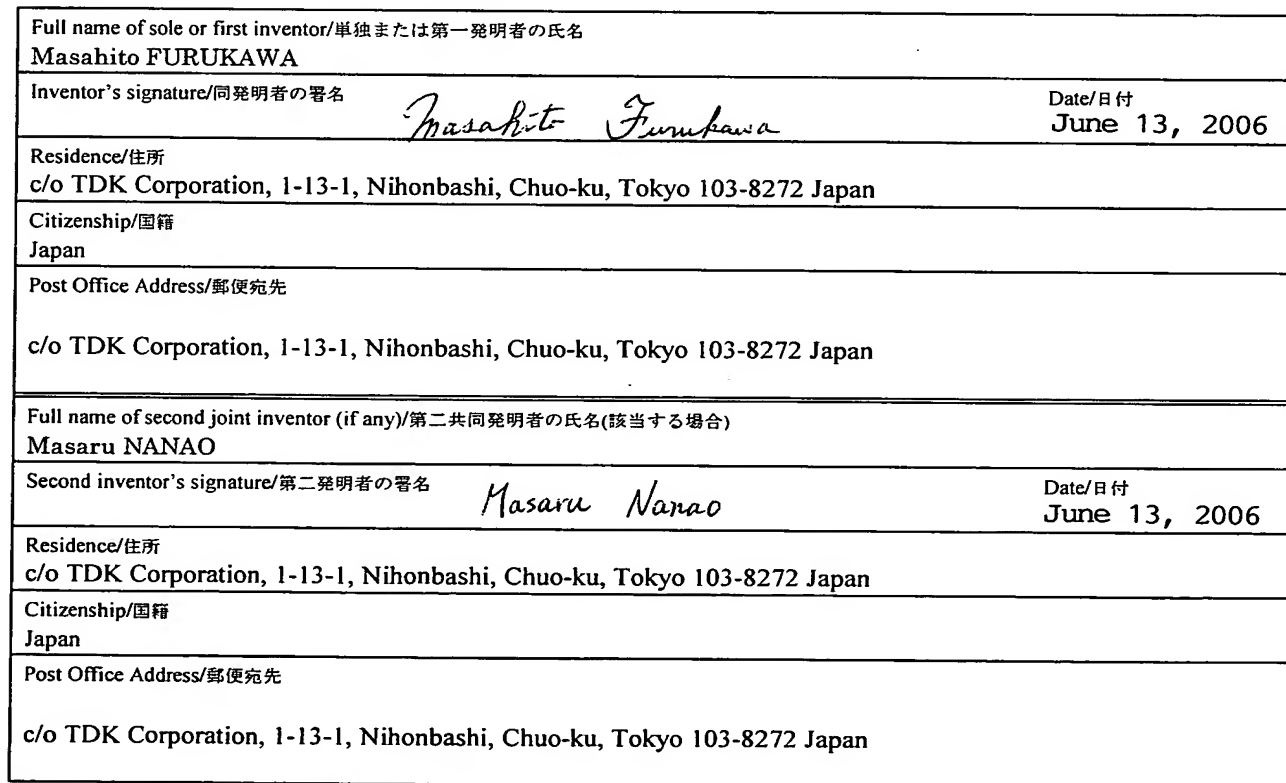 Full name of sole or first inventor/単独または第一発明者の氏名
Masahito FURUKAWA
Inventor's signature/同発明者の署名 Masahito Furukawa Date/日付
June 13, 2006
Residence/住所
c/o TDK Corporation, 1-13-1, Nihonbashi, Chuo-ku, Tokyo 103-8272 Japan
Citizenship/国籍
Japan
Post Office Address/郵便宛先
c/o TDK Corporation, 1-13-1, Nihonbashi, Chuo-ku, Tokyo 103-8272 Japan
Full name of second joint inventor (if any)/第二共同発明者の氏名(該当する場合)
Masaru NANAO
Second inventor's signature/第二発明者の署名 Masaru Nanao Date/日付
June 13, 2006
Residence/住所
c/o TDK Corporation, 1-13-1, Nihonbashi, Chuo-ku, Tokyo 103-8272 Japan
Citizenship/国籍
Japan
Post Office Address/郵便宛先
c/o TDK Corporation, 1-13-1, Nihonbashi, Chuo-ku, Tokyo 103-8272 Japan